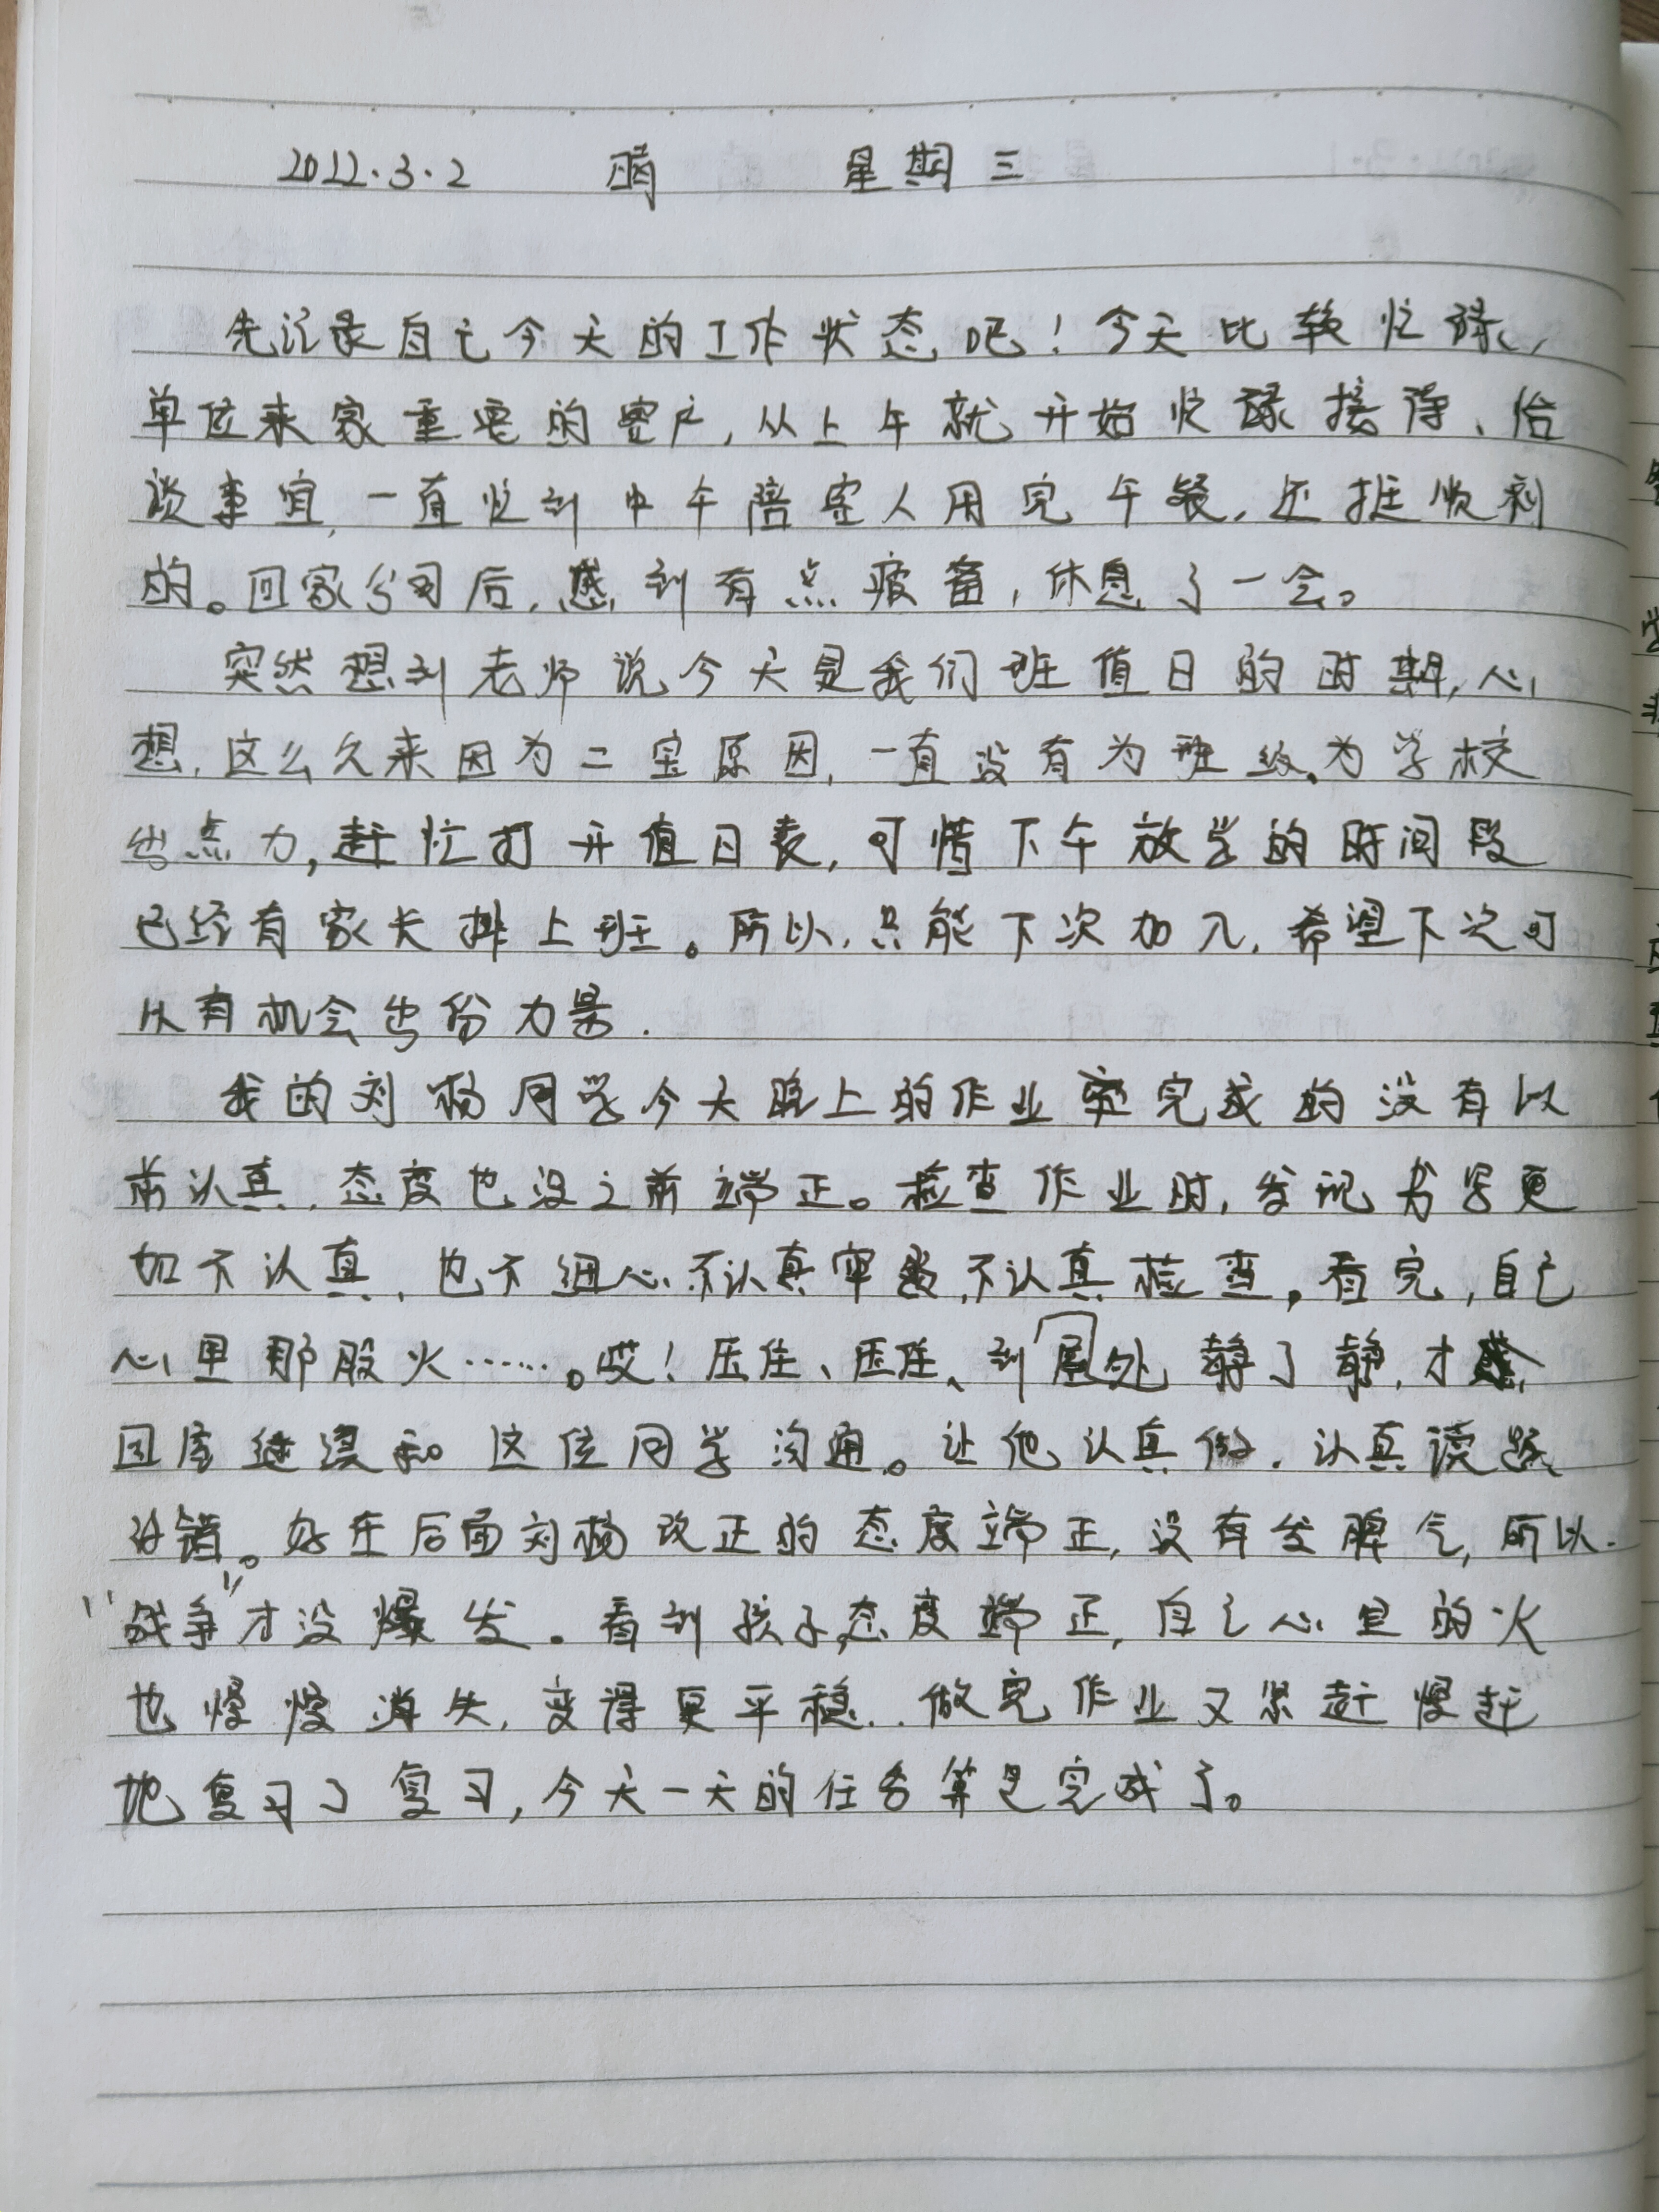 2022.3.2 晴 星期三
先记录自己今天的工作状态吧！今天比较忙碌，
单位来家重要的客户，从上午就开始忙碌接待、恰
谈事宜，一直忙到中午陪客人用完午餐，还挺顺利
的。回家公司后，感到有点疲惫，休息了一会。
突然想到老师说今天是我们班值日的时期，心
想，这么久来因为二宝原因，一直没有为班级、为学校
出点力，赶忙打开值日表，可惜下午放学的时间段
已经有家长排上班。所以，只能下次加入，希望下次可
以有机会出份力量.
我的刘杨同学今天晚上的作业完成的没有以
前认真，态度也没之前端正。检查作业时，发现书写更
加不认真，也不细心、不认真审题，不认真检查。看完，自己
心里那股火……。哎！压住、压住、到居处静了静，才
回房继续和这位同学沟通。让他认真做.认真读题、
改错。好在后面刘杨改正的态度端正，没有发脾气，所以.
“战争”才没爆发。看到孩子态度端正，自己心里的火
也慢慢消失，变得更平稳..做完作业又紧赶慢赶
地复习了复习，今天一天的任务算是完成了。